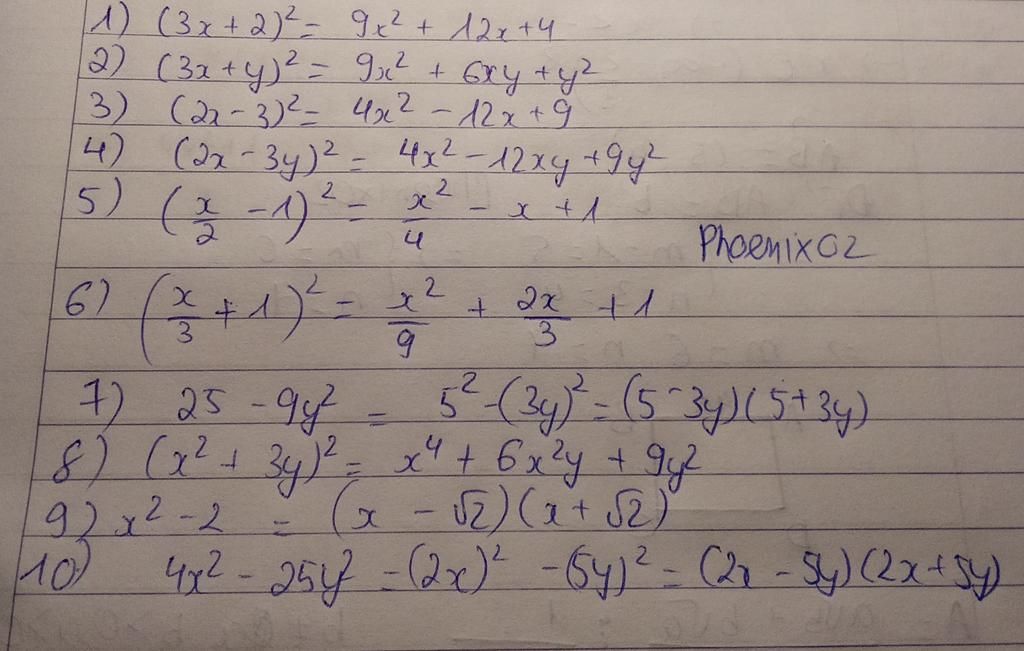 1) (3x + 2)² = 9x² + 12x + 4
2) (3x + y)² = 9x² + 6xy + y²
3) (2x - 3)² = 4x² - 12x + 9
4) (2x - 3y)² = 4x² - 12xy + 9y²
5) (x/2 - 1)² = x²/4 - x + 1
Phoenix02
6) (x/3 + 1)² = x²/9 + 2x/3 + 1
7) 25 - 9y² = 5² - (3y)² = (5 - 3y)(5 + 3y)
8) (x² + 3y)² = x⁴ + 6x²y + 9y²
9) x² - 2 = (x - √2)(x + √2)
10) 4x² - 25y² = (2x)² - (5y)² = (2x - 5y)(2x + 5y)